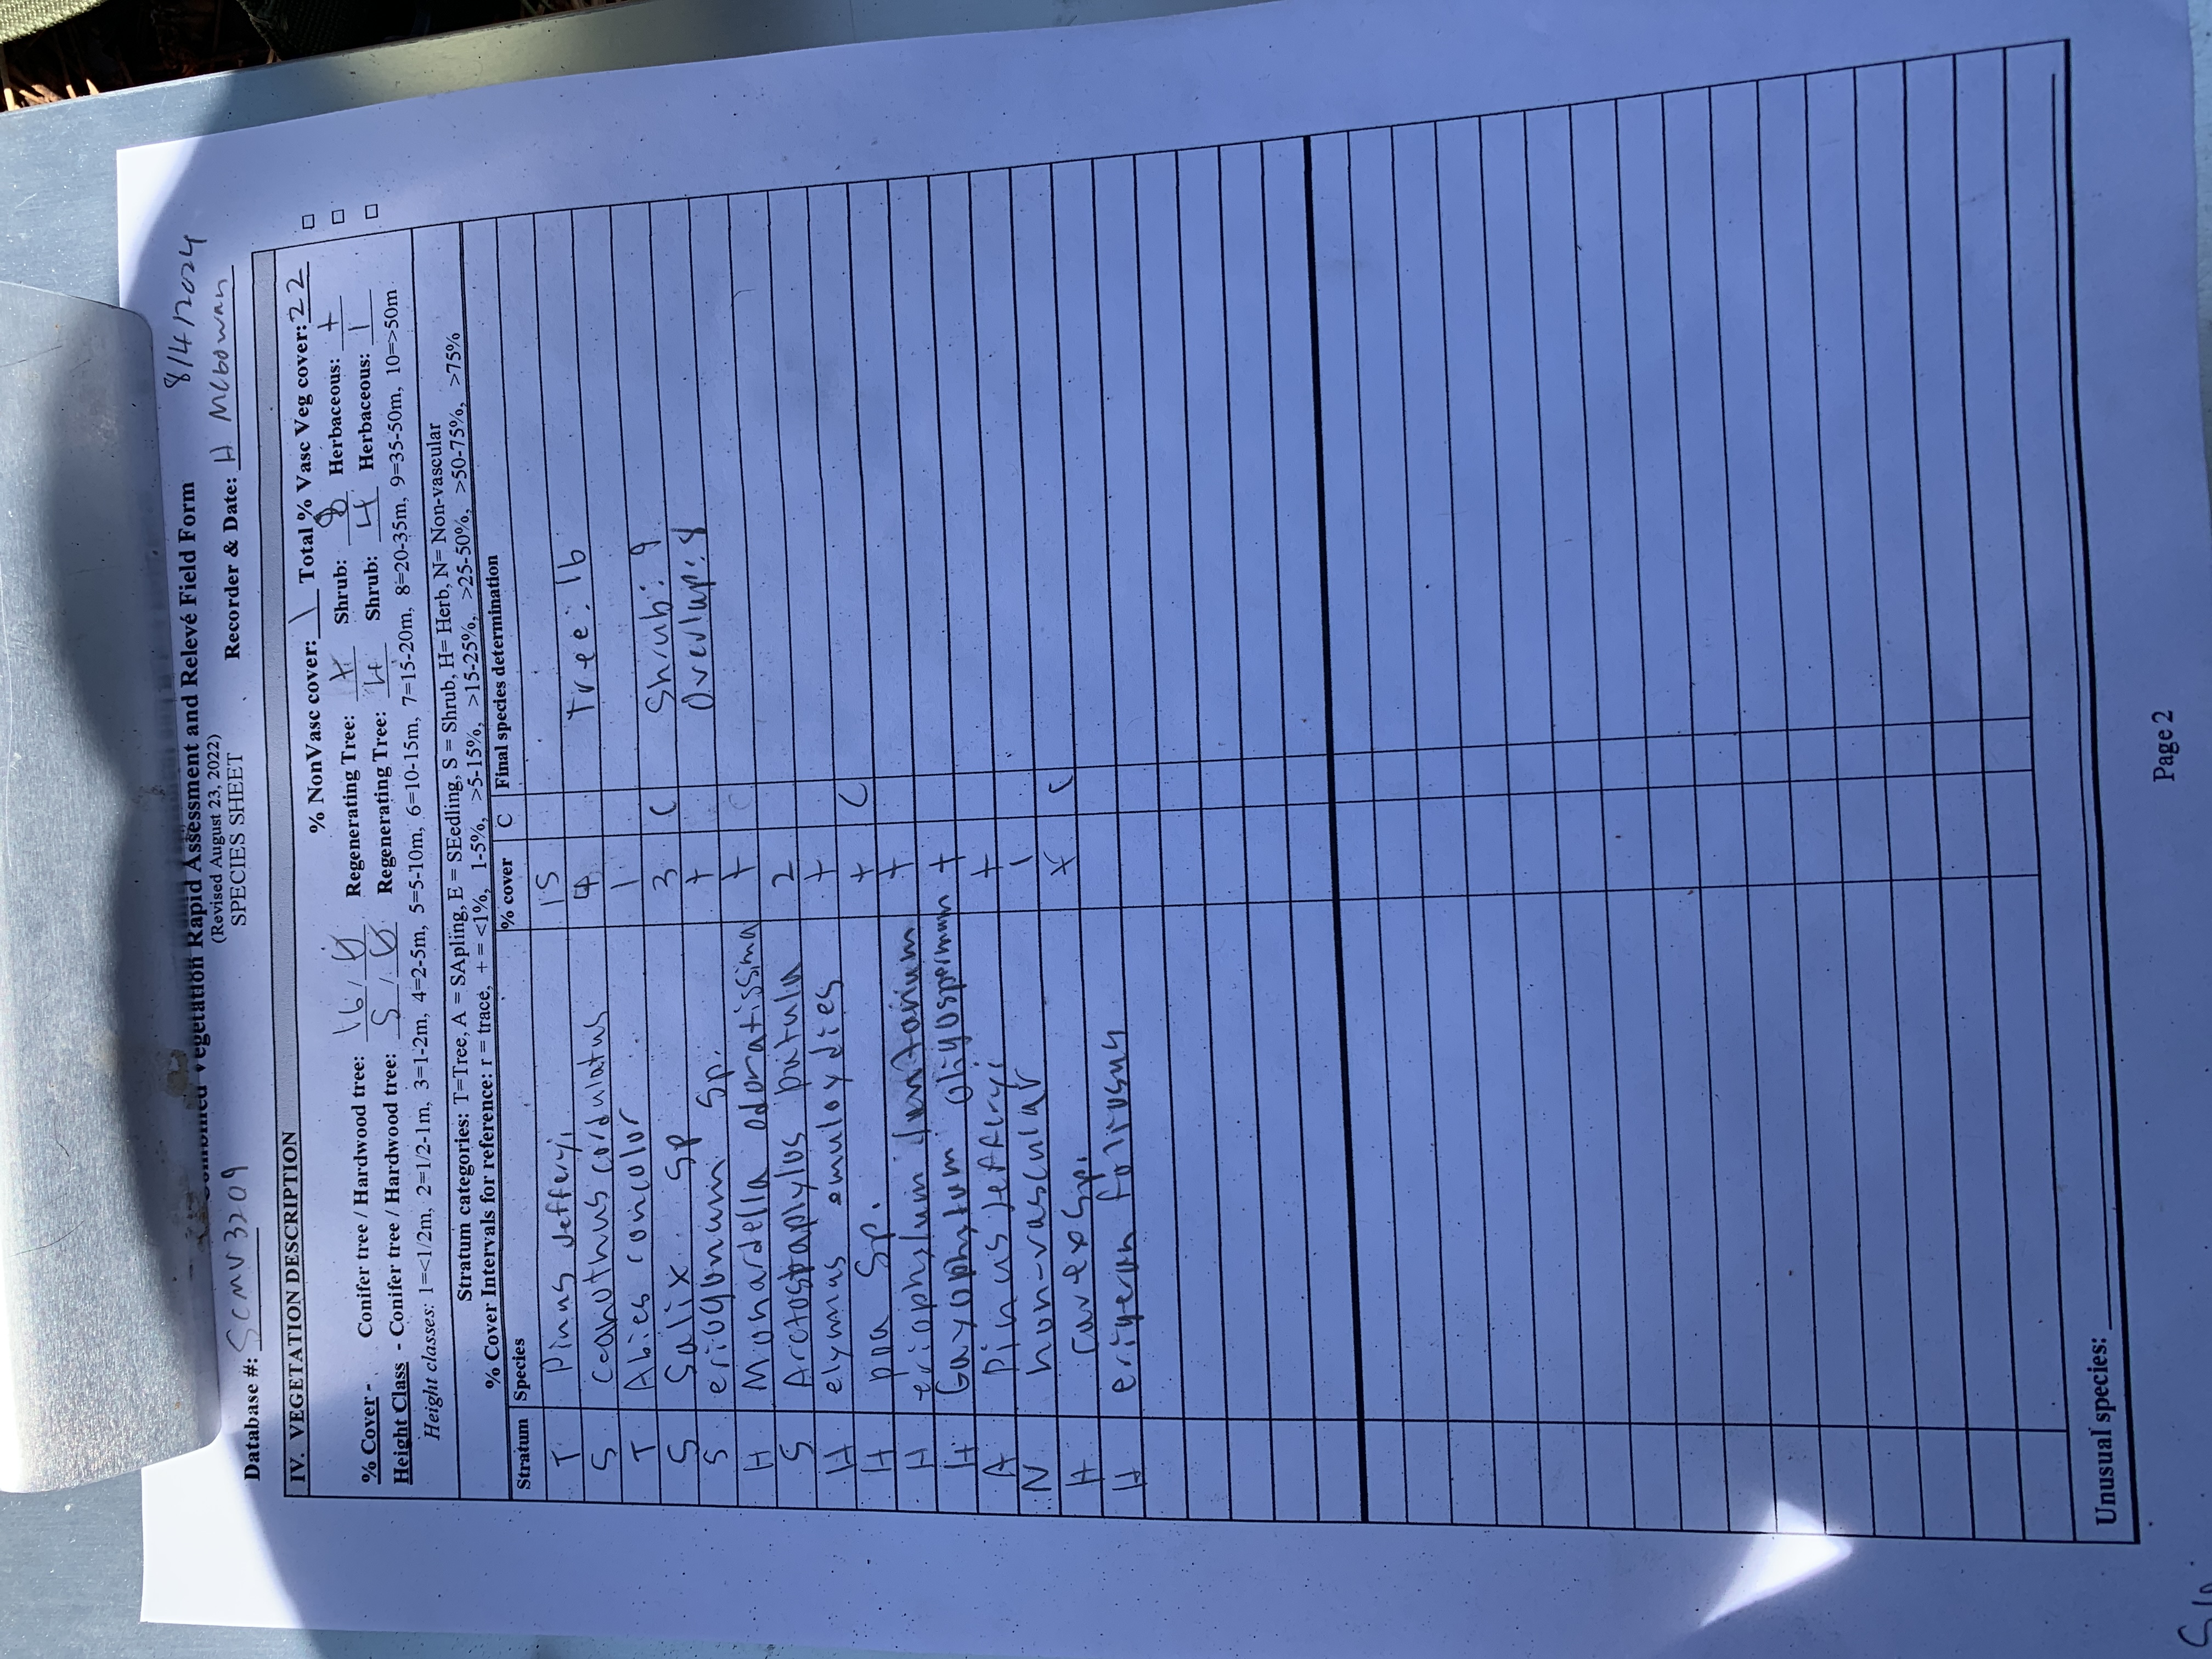 Combined Vegetation Rapid Assessment and Relevé Field Form
8/4/2024
(Revised August 23, 2022)
SPECIES SHEET
Database #: SCMV3209 Recorder & Date: H McGowan
IV. VEGETATION DESCRIPTION
% NonVasc cover: \ Total % Vasc Veg cover: 22 □
% Cover - Conifer tree / Hardwood tree: 16 / 0 Regenerating Tree: + Shrub: 8 Herbaceous: + □
Height Class - Conifer tree / Hardwood tree: 5 / 0 Regenerating Tree: 4 Shrub: 4 Herbaceous: 1 □
Height classes: 1=<1/2m, 2=1/2-1m, 3=1-2m, 4=2-5m, 5=5-10m, 6=10-15m, 7=15-20m, 8=20-35m, 9=35-50m, 10=>50m
Stratum categories: T=Tree, A = SApling, E = SEedling, S = Shrub, H= Herb, N= Non-vascular
% Cover Intervals for reference: r = trace, + = <1%, 1-5%, >5-15%, >15-25%, >25-50%, >50-75%, >75%
Stratum Species % cover C Final species determination
T Pinus jefferyi 15
S Ceanothus cordulatus 4 Tree: 16
T Abies concolor 1
S Salix sp 3 C Shrub: 9
S eriogonum sp. + Overlap: 8
H Monardella odoratissima + C
S Arctostaphylos patula 2
H elymus emuloydies +
H poa sp. + C
H eriophylum lanatarium +
H Gayophytum oligospermum +
A pinus jefferyi +
N non-vascular 1
H Carex sp. + C
H erigeron foliosus
Unusual species:
Page 2